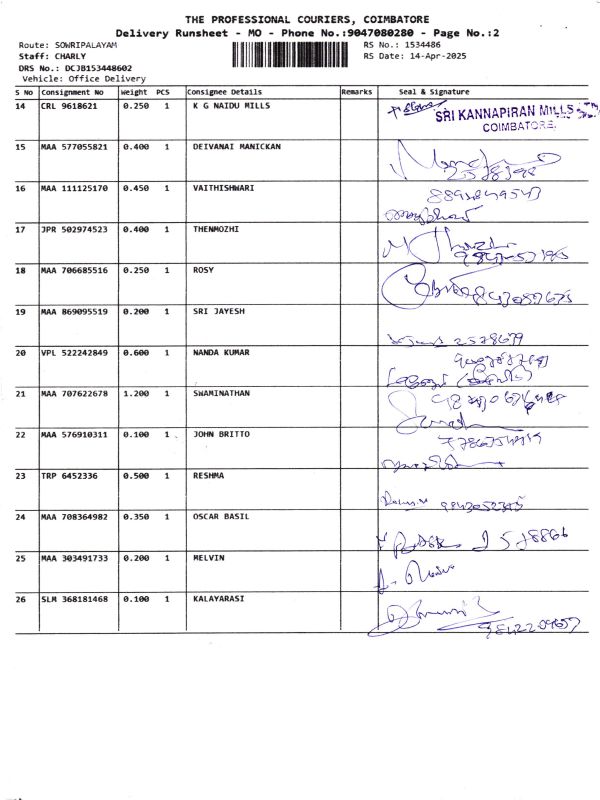 THE PROFESSIONAL COURIERS, COIMBATORE
Delivery Runsheet - MO - Phone No.:9047080280 - Page No.:2
Route: SOWRIPALAYAM RS No.: 1534486
Staff: CHARLY RS Date: 14-Apr-2025
DRS No.: DCJB153448602
Vehicle: Office Delivery
S No Consignment No Weight PCS Consignee Details Remarks Seal & Signature
14 CRL 9618621 0.250 1 K G NAIDU MILLS
SRI KANNAPIRAN MILLS
COIMBATORE.
15 MAA 577055821 0.400 1 DEIVANAI MANICKAN
16 MAA 111125170 0.450 1 VAITHISHWARI
17 JPR 502974523 0.400 1 THENMOZHI
18 MAA 706685516 0.250 1 ROSY
19 MAA 869095519 0.200 1 SRI JAYESH
2578679
20 VPL 522242849 0.600 1 NANDA KUMAR
21 MAA 707622678 1.200 1 SWAMINATHAN
22 MAA 576910311 0.100 1 JOHN BRITTO
23 TRP 6452336 0.500 1 RESHMA
9843052345
24 MAA 708364982 0.350 1 OSCAR BASIL
25 MAA 303491733 0.200 1 MELVIN
26 SLM 368181468 0.100 1 KALAYARASI